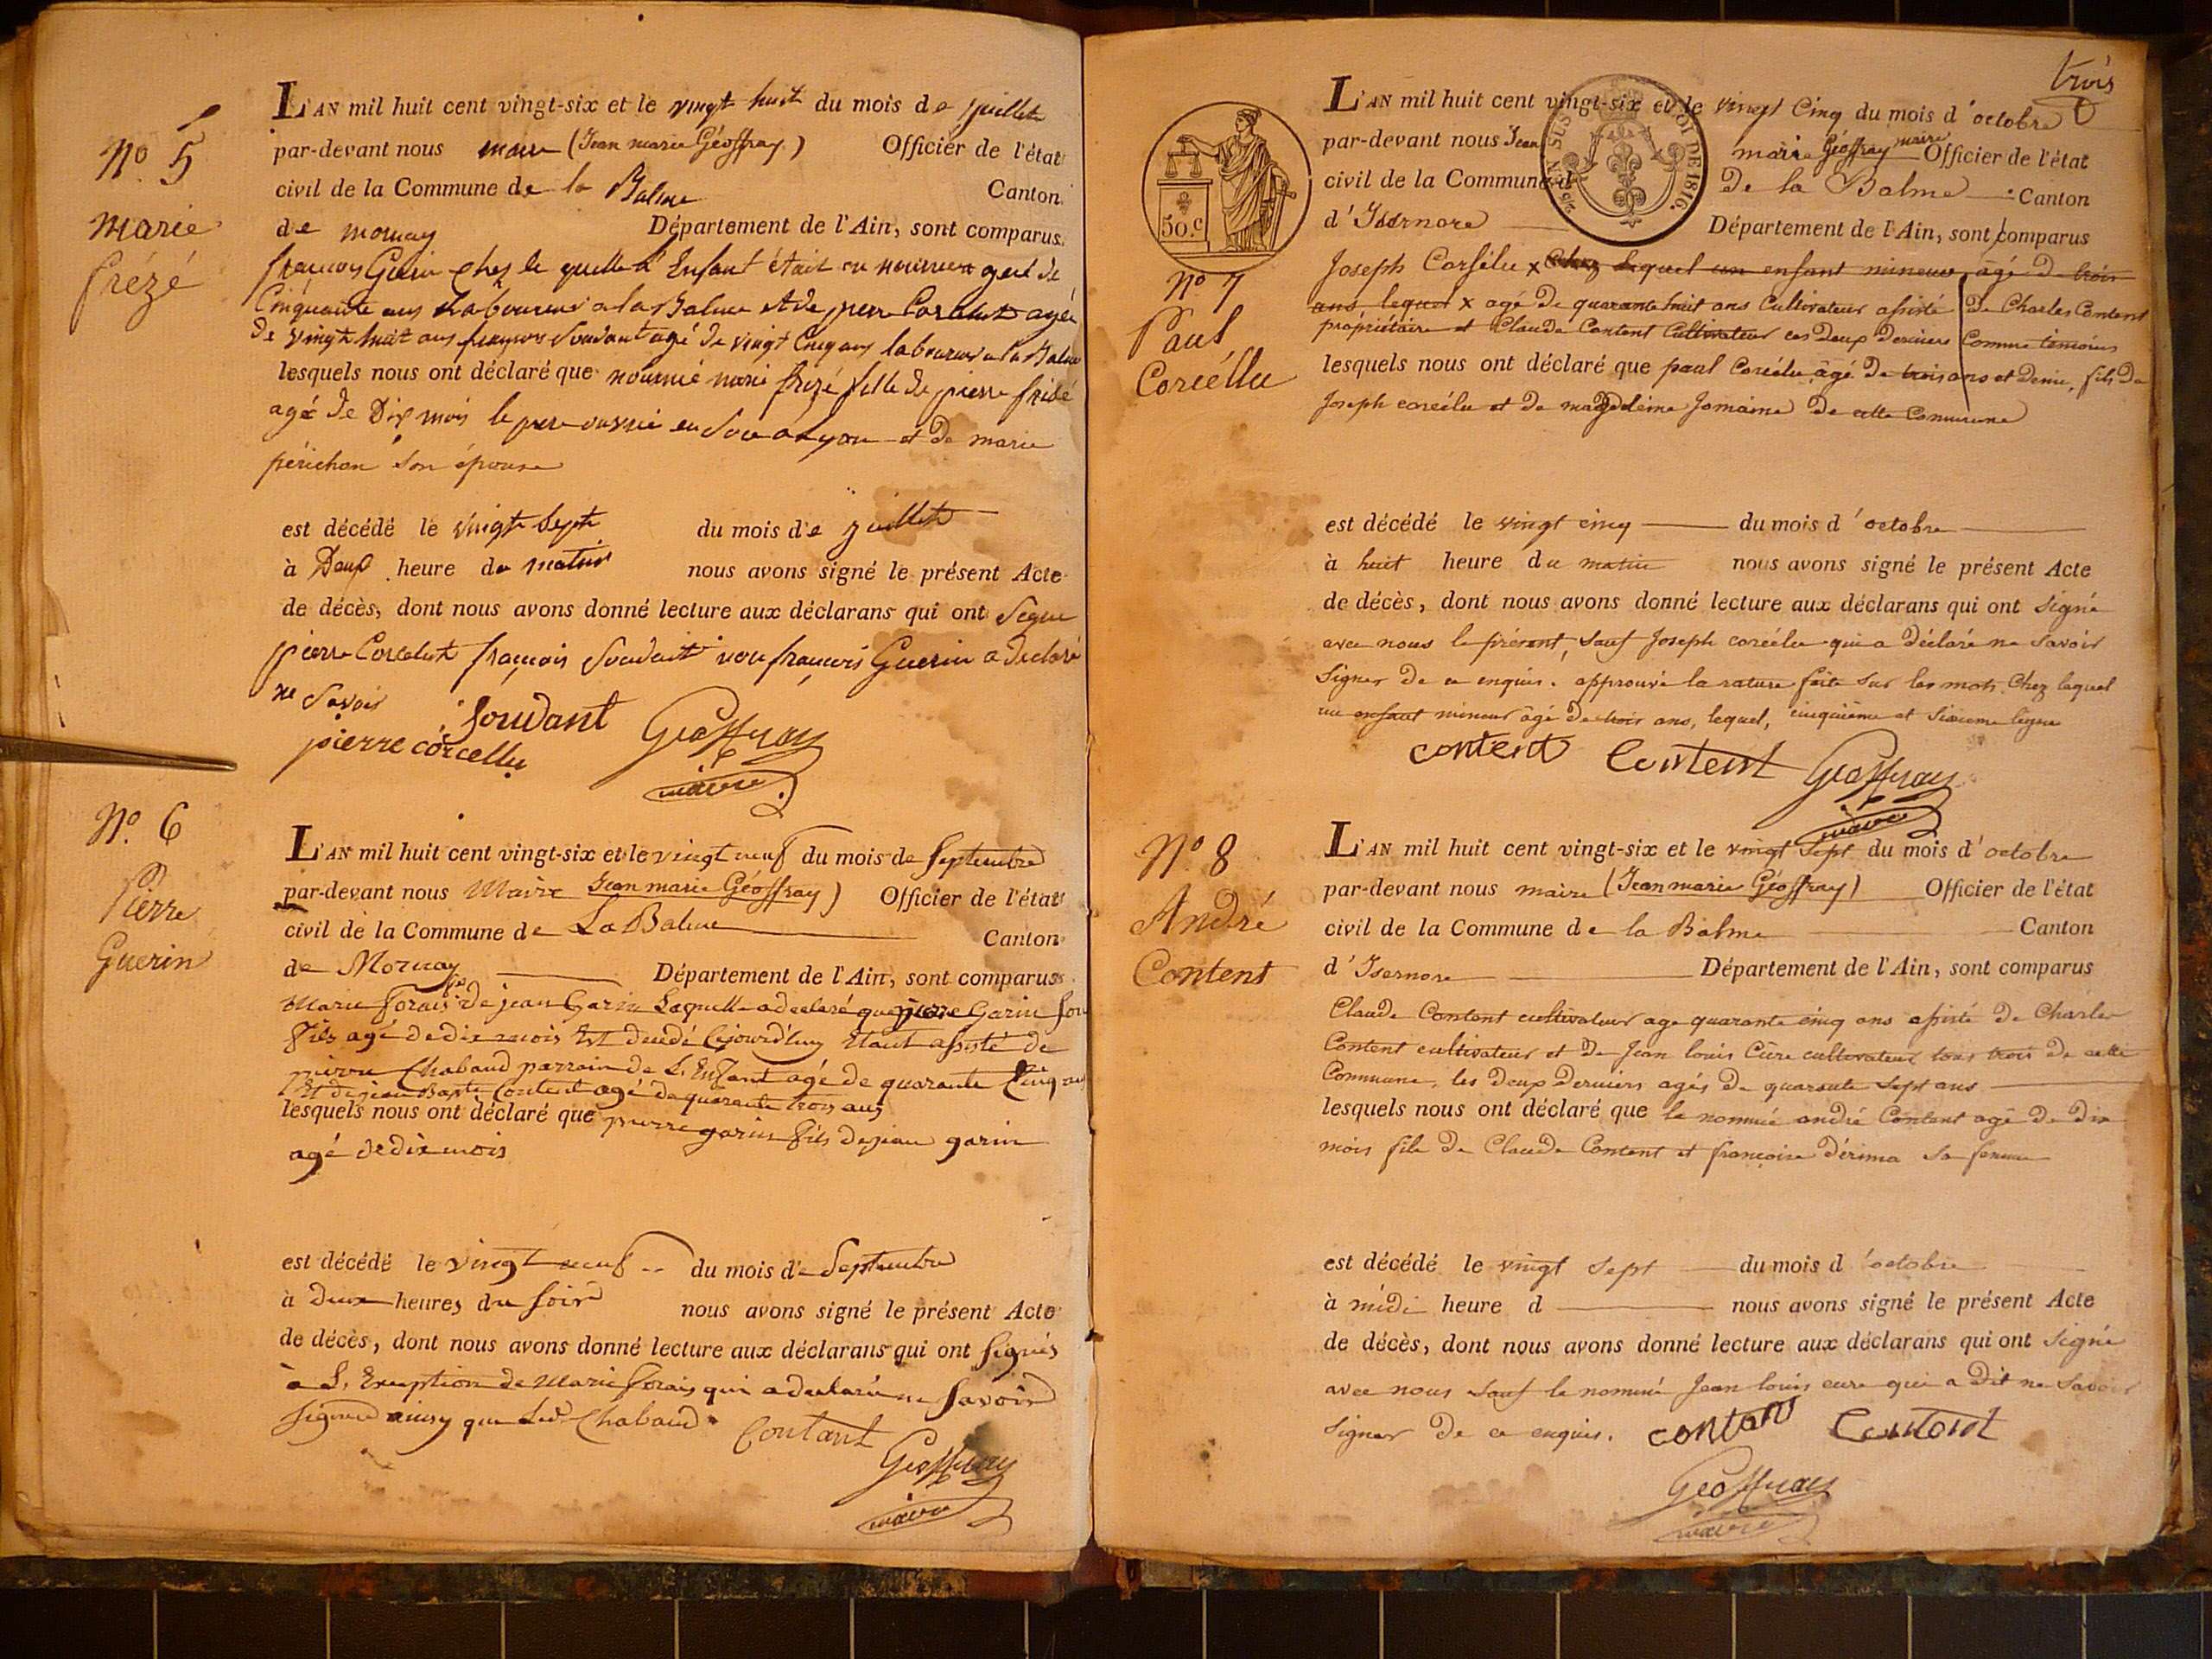 N.º 5
marie
frézé
L'AN mil huit cent vingt-six et le vingt huit du mois de juillet
par-devant nous maire (Jean marie Géoffray) Officier de l'état
civil de la Commune de la Balme Canton
de mornay Département de l'Ain, sont comparus
françois Guerin chez le quelle l'Enfant était en nourrice agé de
Cinquante ans Laboureur a la Balme et de pierre Corcelut agé
de vingt huit ans françois Soudant agé de vingt Cinq ans laboureur a la Balme
lesquels nous ont déclaré que nommé marie frezé fille de pierre frézé
agé de Dix mois le pere ouvrié en Soie a Lyon et de marie
périchon son épouse
est décédé le vingt Sept du mois de juillet
à Deux heure du matin nous avons signé le présent Acte
de décès, dont nous avons donné lecture aux déclarans qui ont Signé
pierre Corcelut françois Soudant non françois Guerin a declaré
ne Savoir
Soudant
pierre corcellu Géoffray
maire
N.º 6
Pierre
Guerin
L'AN mil huit cent vingt-six et le vingt neuf du mois de Septembre
par-devant nous Maire Jean marie Géoffray) Officier de l'état
civil de la Commune de La Balme Canton
de Mornay Département de l'Ain, sont comparus
Marie de jean Garin Laquelle a declaré que pierre Garin son
fils agé de dix mois Est decedé Cejourd'huy Etant assisté de
pierre Chabaud parrain de L'Enfant agé de quarante Cinq ans
Et de jean Bapte Content agé de quarante trois ans
lesquels nous ont déclaré que pierre garin fils de jean garin
agé de dix mois
est décédé le vingt neuf du mois de Septembre
à deux heures du soir nous avons signé le présent Acte
de décès, dont nous avons donné lecture aux déclarans qui ont signés
à L'Exeption de Marie qui a declaré ne savoir
signer ainsy que Led. Chabaud Contant
Géoffray
maire
trois
50.c
LOI DE 1816.
N.º 7
Paul
Corcéllu
L'AN mil huit cent vingt-six et le vingt Cinq du mois d'octobre
par-devant nous Jean marie Géoffray maire Officier de l'état
civil de la Commune de la Balme Canton
d'Isernore Département de l'Ain, sont comparus
Joseph Corsélu x chez lequel un enfant mineur, âgé de trois
ans, lequel x agé de quarante huit ans Cultivateur assisté de Charles Content
propriétaire et Claude Content Cultivateur ces Deux Derniers Comme témoins
lesquels nous ont déclaré que paul Corcélu âgé de trois ans et demi, fils de
Joseph corcélu et de magdeleine Jomaine de cette Commune
est décédé le vingt cinq du mois d'octobre
à huit heure du matin nous avons signé le présent Acte
de décès, dont nous avons donné lecture aux déclarans qui ont signé
avec nous le présent, sauf Joseph corcélu qui a déclaré ne savoir
Signer de ce enquis. approuvé la rature faite sur les mots, Chez lequel
un enfant mineur âgé de trois ans, lequel, cinquième et sixieme ligne
content Content Géoffray
maire
N.º 8
André
Content
L'AN mil huit cent vingt-six et le vingt sept du mois d'octobre
par-devant nous maire (Jean marie Géoffray) Officier de l'état
civil de la Commune de la Balme Canton
d'Isernore Département de l'Ain, sont comparus
Claude Content cultivateur age quarante cinq ans assisté de Charles
Content cultivateur et de Jean louis Cure cultivateur tous trois de cette
Commune, les Deux Derniers agés de quarante sept ans
lesquels nous ont déclaré que le nommé andré Content agé de dix
mois fils de Claude Content et françoise sa femme
est décédé le vingt sept du mois d'octobre
à midi heure d nous avons signé le présent Acte
de décès, dont nous avons donné lecture aux déclarans qui ont signé
avec nous sauf le nommé Jean louis cure qui a Dit ne savoir
signer de ce enquis. content Content
Géoffray
maire